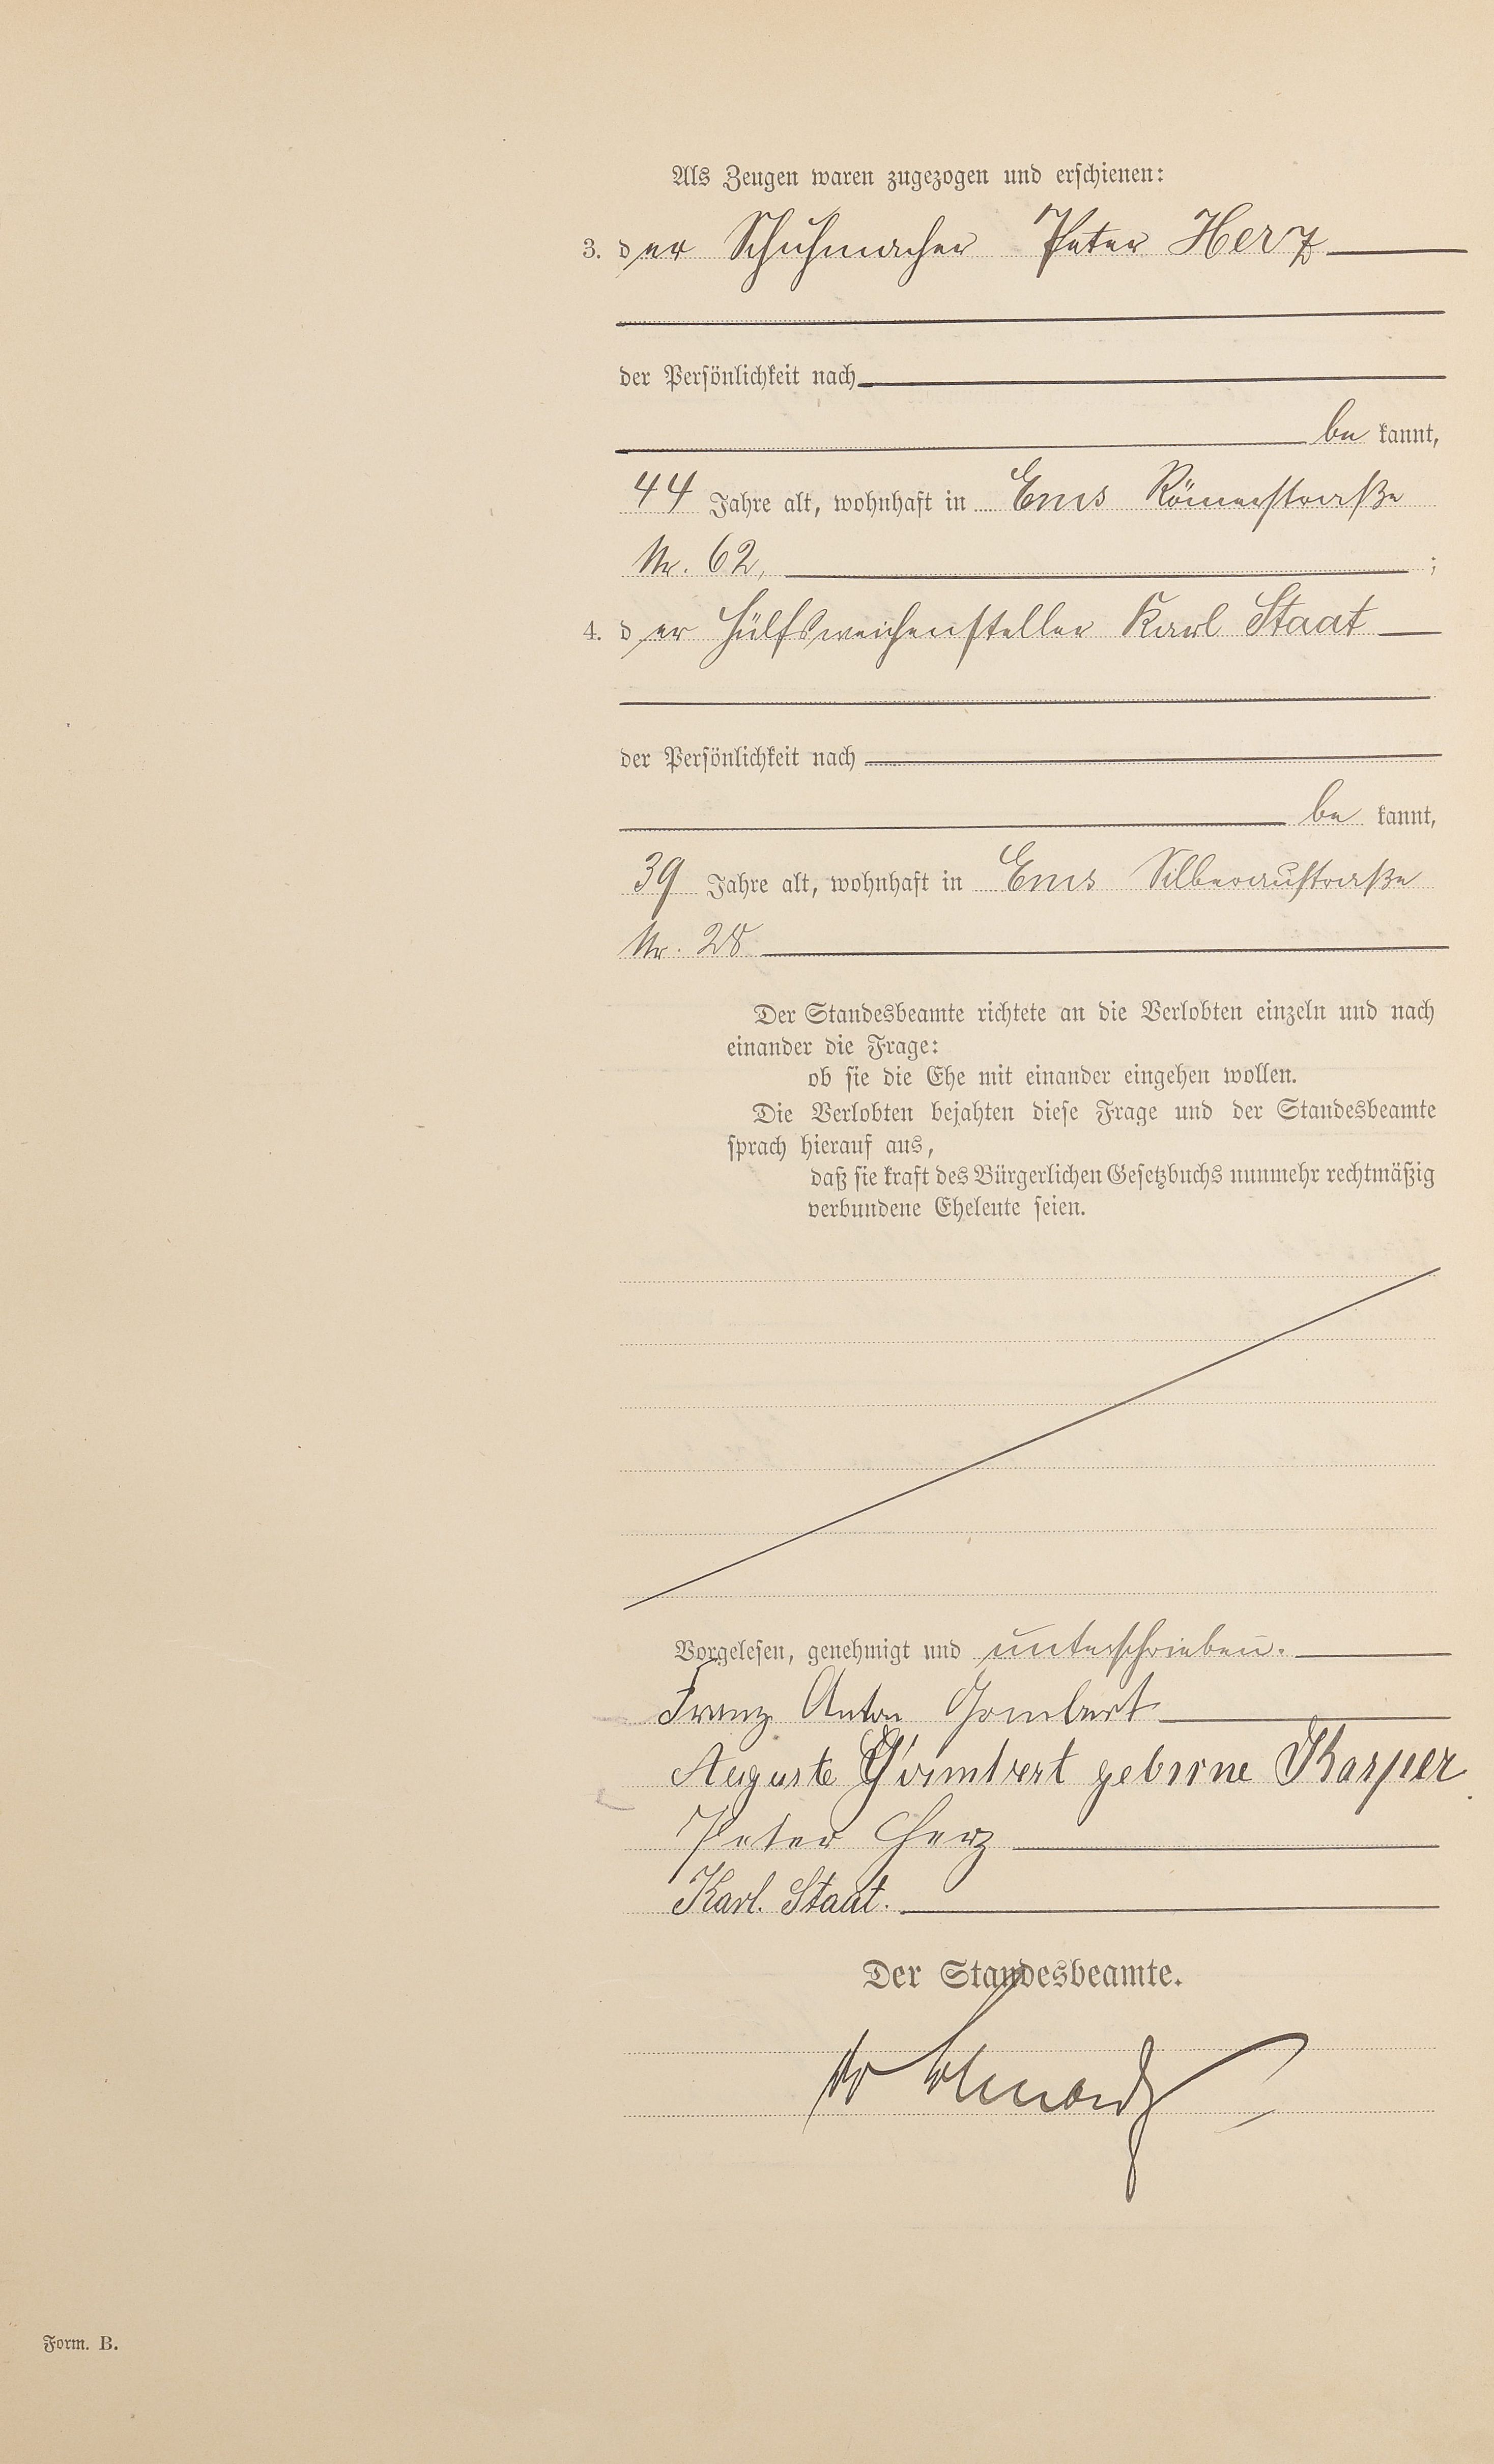 Als Zeugen waren zugezogen und erschienen:
3. der Schuhmacher Peter Herz
der Persönlichkeit nach
be kannt,
44 Jahre alt, wohnhaft in Ems Römerstraße
Nr. 62, ;
4. der Hülfsweichensteller Karl Staat
der Persönlichkeit nach
be kannt,
39 Jahre alt, wohnhaft in Ems Silberaustraße
Nr. 28
Der Standesbeamte richtete an die Verlobten einzeln und nach
einander die Frage:
ob sie die Ehe mit einander eingehen wollen.
Die Verlobten bejahten diese Frage und der Standesbeamte
sprach hierauf aus,
daß sie kraft des Bürgerlichen Gesetzbuchs nunmehr rechtmäßig
verbundene Eheleute seien.
Vorgelesen, genehmigt und unterschrieben.
Franz Anton Gombert
Auguste Gombert geborne Kasper
Peter Herz
Karl Staat.
Der Standesbeamte.
Form. B.